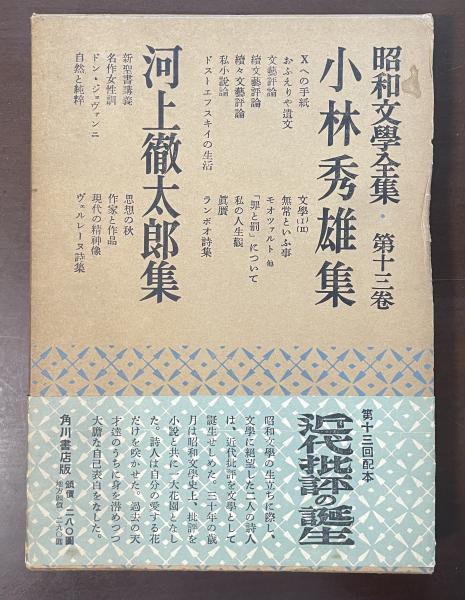 昭和文學全集・第十三卷
小林秀雄集
Xへの手紙
おふえりや遺文
文藝評論
續文藝評論
續々文藝評論
私小說論
ドストエフスキイの生活
文學(I)(II)
無常といふ事
モオツァルト 他
「罪と罰」について
私の人生觀
眞贋
ランボオ詩集
河上徹太郎集
新聖書講義
名作女性訓
ドン・ジョヴァンニ
自然と純粹
思想の秋
作家と作品
現代の精神像
ヴェルレーヌ詩集
第十三回配本
近代批評の誕生
昭和文學の生立ちに際し、
文學に絕望した二人の詩人
は、近代批評を文學として
誕生せしめた。三十年の歲
月は昭和文學史上、批評を
小說と共に一大花園となし
た。詩人は自分の愛する花
だけを咲かせた。過去の天
才達のうちに身を潛めつつ
大膽な自己表白をなした。
角川書店版
頒價 二八〇圓
地方頒價 二八〇圓